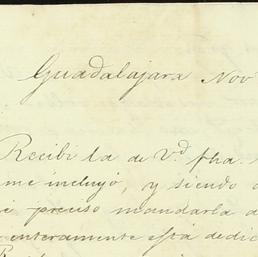 Guadalajara Nov
Recibi la de Vd fha.
me incluyó, y siendo
preciso mandarla a
enteramente está dedic